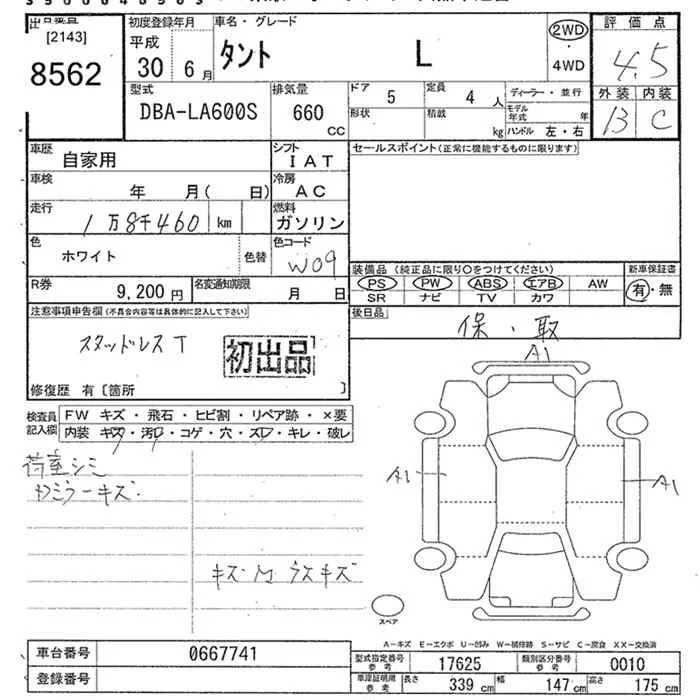 [2143]
8562
初度登録年月
平成
30 6月
車名・グレード
タント L
2WD
・
4WD
評価点
4.5
外装 内装
B C
型式
DBA-LA600S
排気量
660
CC
ドア 5
定員 4人
形状
積載 kg
ディーラー・並行
モデル年式 年
ハンドル 左・右
車歴
自家用
シフト
IAT
セールスポイント(正常に機能するものに限ります)
車検
年 月( 日)
冷房
AC
走行
1万8千460 km
燃料
ガソリン
色
ホワイト
色替
色コード
W09
装備品 (純正品に限り○をつけてください)
PS PW ABS エアB AW
SR ナビ TV カワ
新車保証書
有・無
R券
9,200円
名変通知期限
月 日
後日品
保・取
注意事項申告欄(不具合内容等は具体的に記入して下さい)
スタッドレスT
初出品
修復歴 有〔箇所 〕
検査員記入欄
FW キズ・飛石・ヒビ割・リペア跡・×要
内装 キズ・汚レ・コゲ・穴・スレ・キレ・破レ
荷室シミ
カミラーキズ
キズ
ウスキズ
A1
A1
A1
スペア
A−キズ E−エクボ U−凹み W−補修跡 S−サビ C−腐食 XX−交換済
車台番号
0667741
登録番号
型式指定番号 参考
17625
類別区分番号 参考
0010
車庫証明用 参考
長さ 339cm
幅 147cm
高さ 175cm